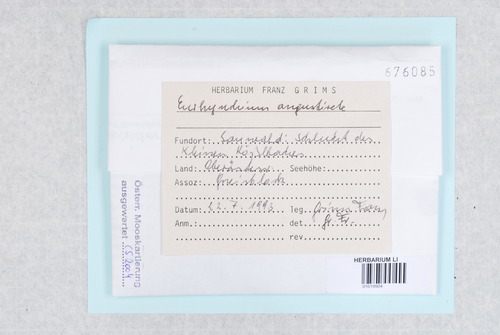 676085
HERBARIUM FRANZ GRIMS
Eurhynchium angustirete
Fundort: Sauwald: Schlucht des
Kleinen Kößlbaches
Land: Oberösterr. Seehöhe:
Assoz:
Datum: 12.7.1993 leg. Grims Franz
Anm.: det. Gr. Fr.
rev.
Österr. Mooskartierung
ausgewertet CS 2004
HERBARIUM LI